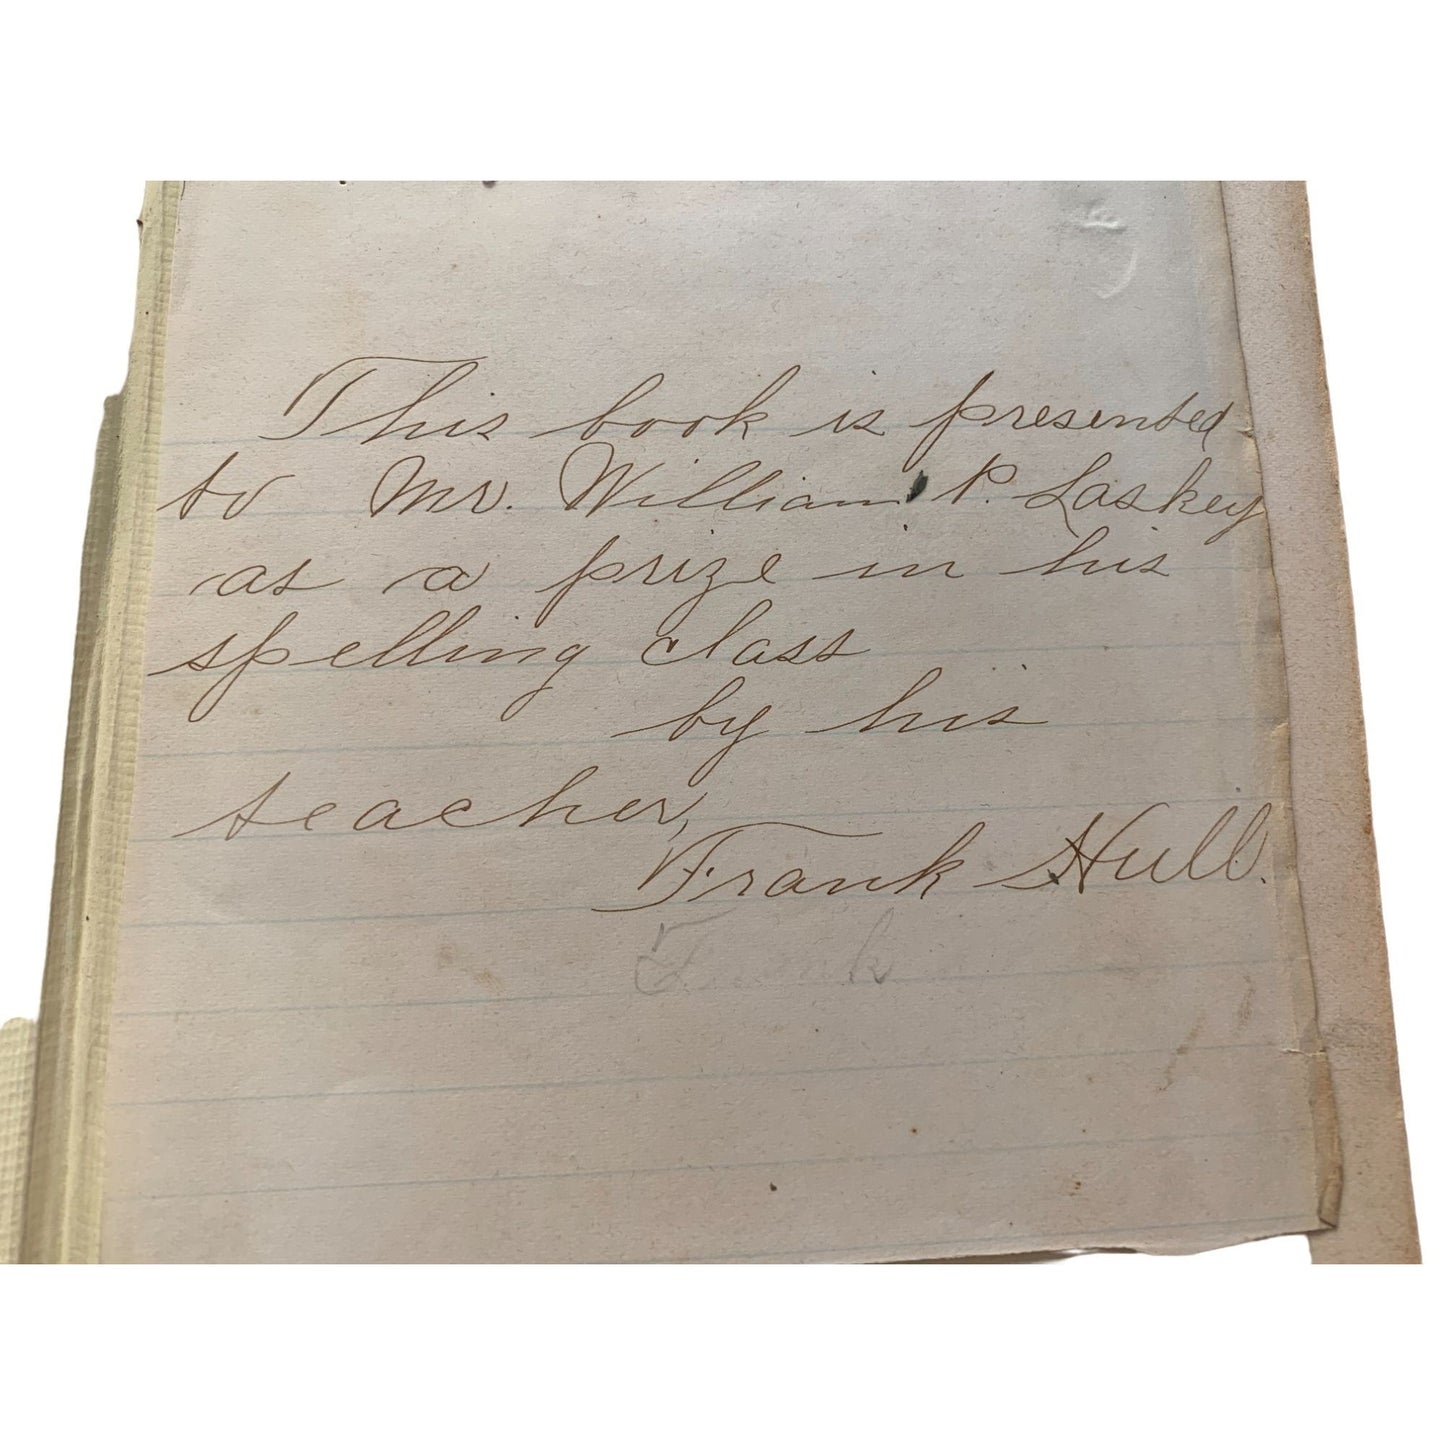 This book is presented
to Mr. William P. Laskey
as a prize in his
spelling class
by his
teacher,
Frank Hull.
Frank